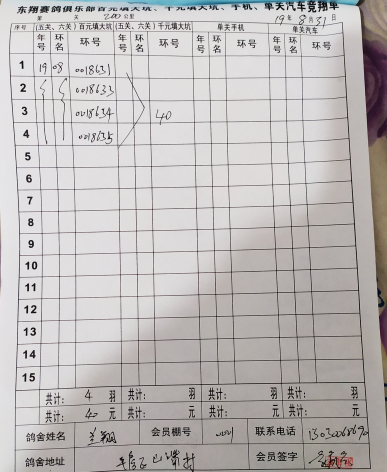 东翔赛鸽俱乐部百元填大坑、千元填大坑、手机、单关汽车竞翔单
第 关 200公里 19年8月31日
序号 (五关、六关)百元填大坑 (五关、六关)千元填大坑 单关手机 单关汽车
年号 环名 环号 年号 环名 环号 年号 环名 环号 年号 环名 环号
1 19 08 0018631
2 0018633
3 0018634 40
4 0018635
5
6
7
8
9
10
11
12
13
14
15
共计: 4 羽 共计: 羽 共计: 羽 共计: 羽
共计: 40 元 共计: 元 共计: 元 共计: 元
鸽舍姓名 兰翔 会员棚号 联系电话
鸽舍地址 会员签字